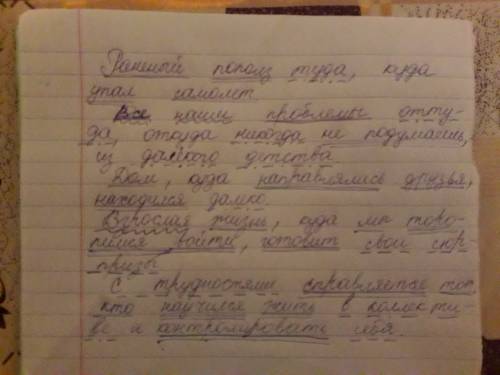 Раненый пополз туда, куда
упал самолет.
Все наши проблемы отту-
да, откуда никогда не подумаешь,
из далёкого детства.
Дом, куда направлялись друзья,
находился далеко.
Взрослая жизнь, куда мы торо-
пимся войти, готовит свои сюр-
призы.
С трудностями справляется тот,
кто научился жить в коллекти-
ве и контролировать себя.